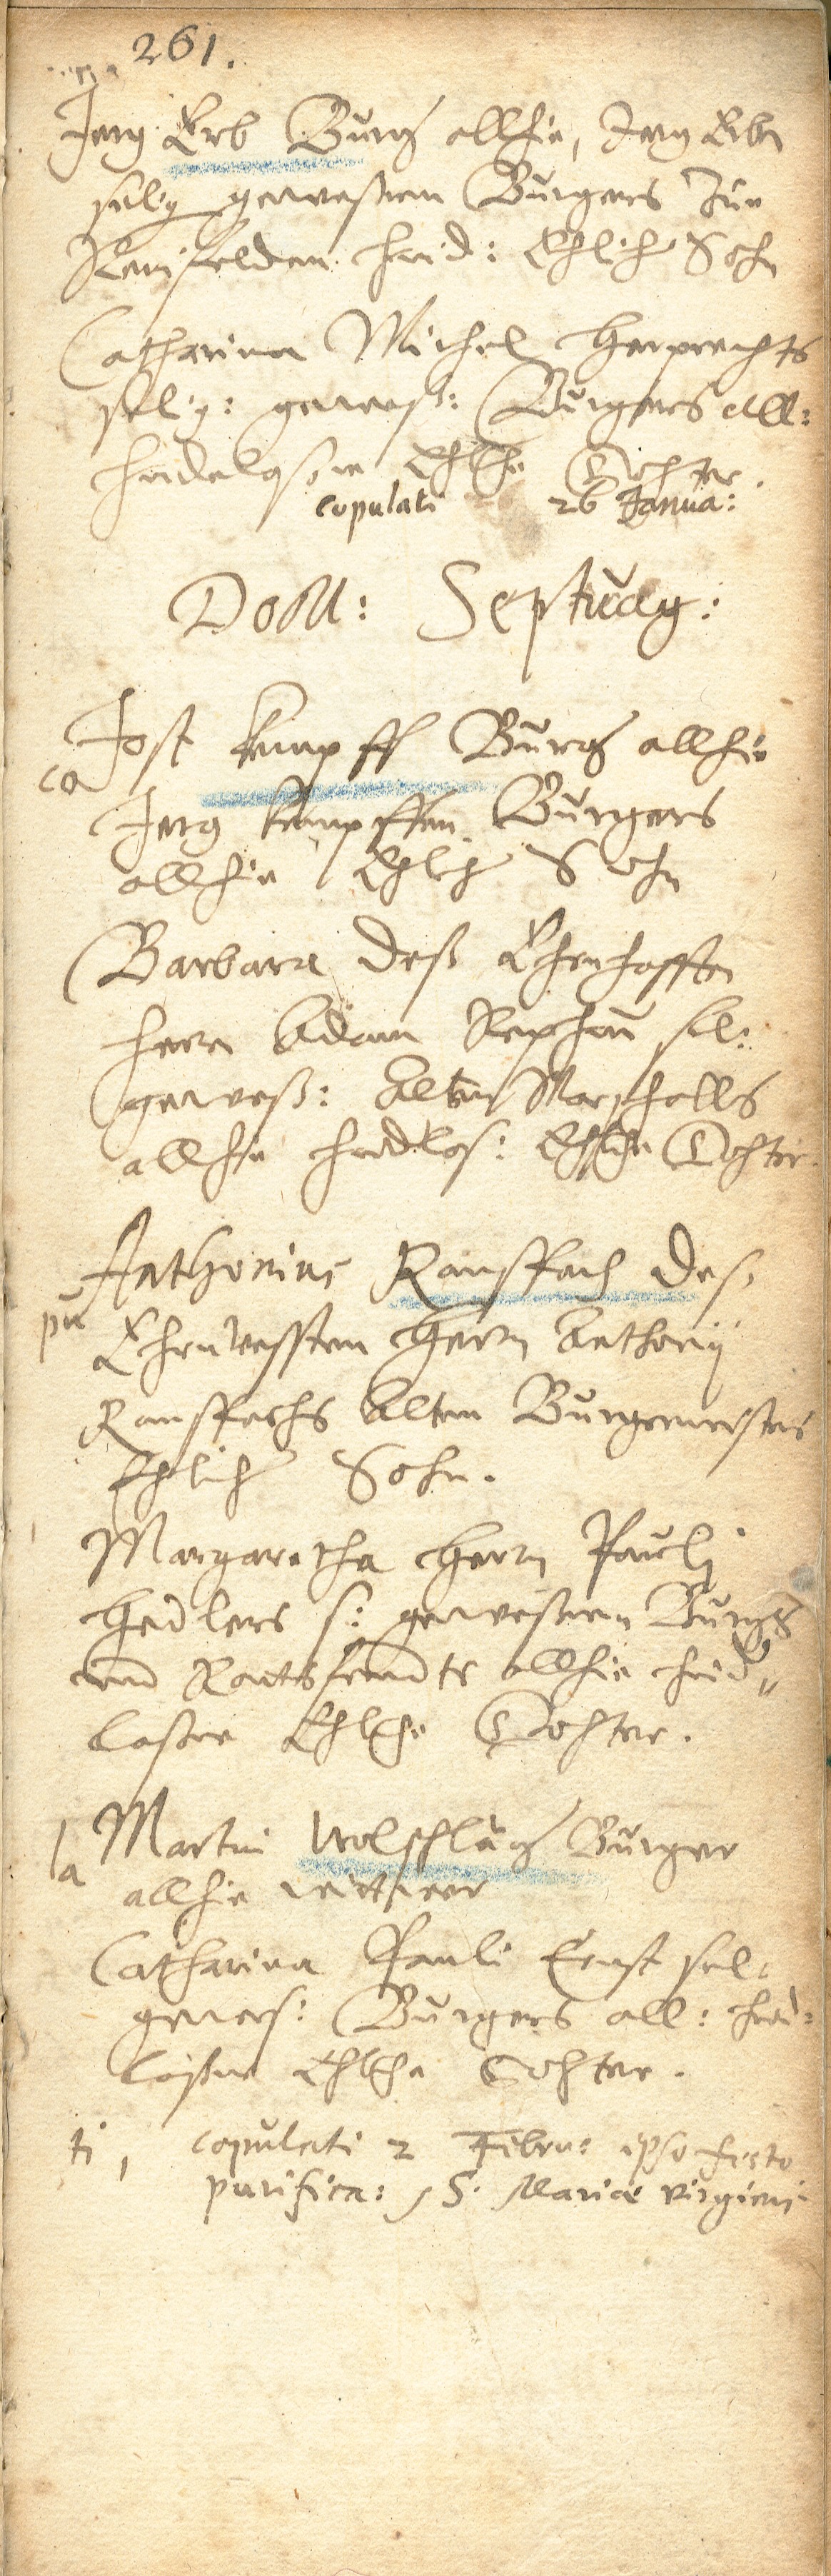 261.
Jerg Erb Burg allhie, Jerg Erben
selig geweßnen Burgers zue
Reinfelden hind: Ehlich Sohn
Catharina Michel Herprechts
selig: geweß: Burgers all:
hindelaßne Ehlche Dohter.
copulati 26 Janua:
DoM: Septuag:
Jost Kempff Burg allhie
co
Jerg Kempffen Burgers
allhie Ehlich Sohn
Barbara deß Ehrnhafften
herrn Adam sel:
geweß: Alten Marschalls
allhie hindlaß: Ehliche Dohter.
Anthonius Ranspach deß
pu
Ehrnvessten Herrn Anthonij
Ranspachs Alten Burgermeisters
Ehlicher Sohn.
Margaretha Herrn Pauli
Hedlers s: geweßnen Burgers
und Rattsfreundts allhie hind„
laßne Ehlche Dohter.
Martin Wolschlag Burger
la
allhie wittwer
Catharina Pauli Ernst sel:
geweß: Burgers all: hind:
laßne Ehlche Dohter.
ti, copulati 2 Febru: ipso festo
purifica: S. Mariæ virginis